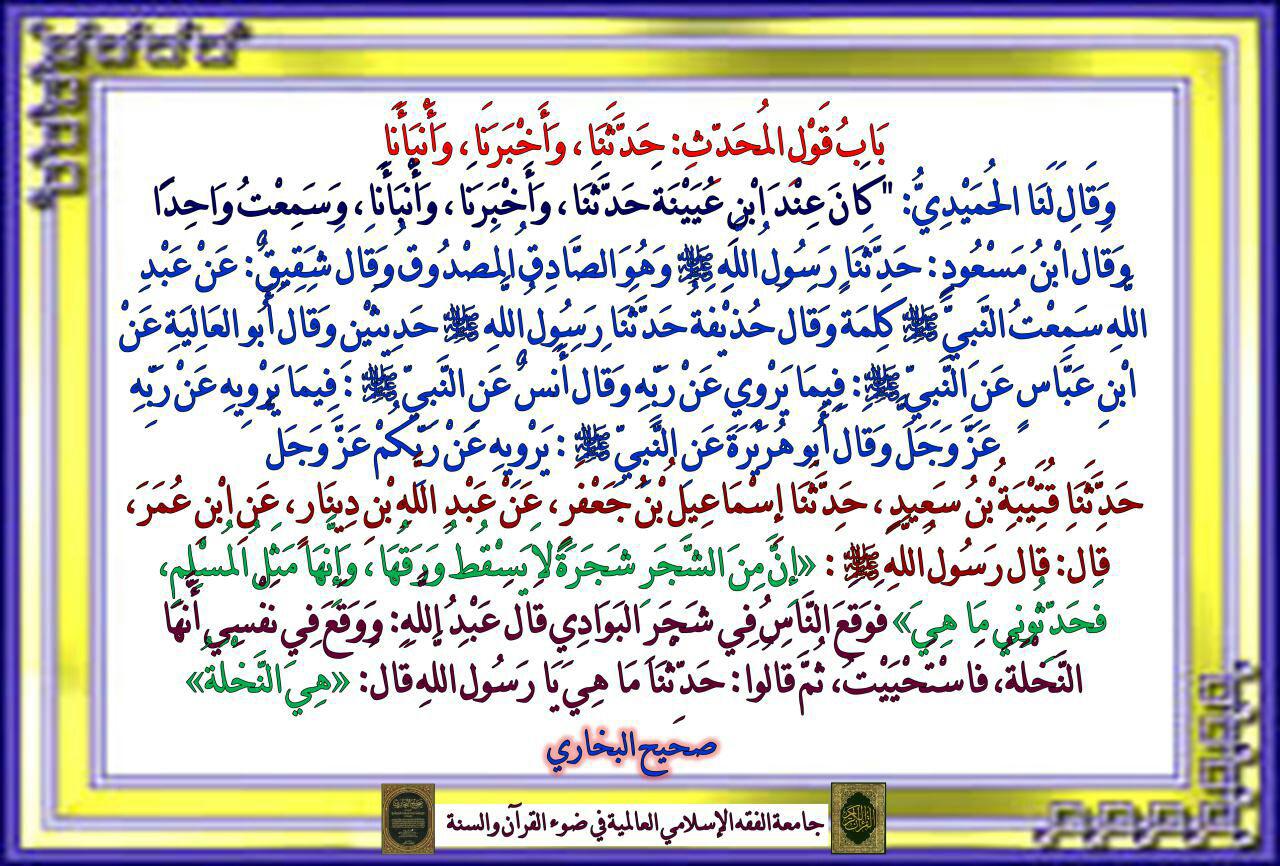 بَابُ قَوْلِ المُحَدِّثِ: حَدَّثَنَا، وَأَخْبَرَنَا، وَأَنْبَأَنَا
وَقَالَ لَنَا الحُمَيْدِيُّ: "كَانَ عِنْدَ ابْنِ عُيَيْنَةَ حَدَّثَنَا، وَأَخْبَرَنَا، وَأَنْبَأَنَا، وَسَمِعْتُ وَاحِدًا
وَقَالَ ابْنُ مَسْعُودٍ: حَدَّثَنَا رَسُولُ اللَّهِ ﷺ وَهُوَ الصَّادِقُ المَصْدُوقُ وَقَالَ شَقِيقٌ: عَنْ عَبْدِ
اللَّهِ سَمِعْتُ النَّبِيَّ ﷺ كَلِمَةً وَقَالَ حُذَيْفَةُ حَدَّثَنَا رَسُولُ اللَّهِ ﷺ حَدِيثَيْنِ وَقَالَ أَبُو العَالِيَةِ عَنْ
ابْنِ عَبَّاسٍ عَنِ النَّبِيِّ ﷺ: فِيمَا يَرْوِي عَنْ رَبِّهِ وَقَالَ أَنَسٌ عَنِ النَّبِيِّ ﷺ : فِيمَا يَرْوِيهِ عَنْ رَبِّهِ
عَزَّ وَجَلَّ وَقَالَ أَبُو هُرَيْرَةَ عَنِ النَّبِيِّ ﷺ : يَرْوِيهِ عَنْ رَبِّكُمْ عَزَّ وَجَلَّ
حَدَّثَنَا قُتَيْبَةُ بْنُ سَعِيدٍ، حَدَّثَنَا إِسْمَاعِيلُ بْنُ جَعْفَرٍ، عَنْ عَبْدِ اللَّهِ بْنِ دِينَارٍ، عَنِ ابْنِ عُمَرَ،
قَالَ: قَالَ رَسُولُ اللَّهِ ﷺ : «إِنَّ مِنَ الشَّجَرِ شَجَرَةً لاَ يَسْقُطُ وَرَقُهَا، وَإِنَّهَا مَثَلُ المُسْلِمِ،
فَحَدِّثُونِي مَا هِيَ» فَوَقَعَ النَّاسُ فِي شَجَرِ البَوَادِي قَالَ عَبْدُ اللَّهِ: وَوَقَعَ فِي نَفْسِي أَنَّهَا
النَّخْلَةُ، فَاسْتَحْيَيْتُ، ثُمَّ قَالُوا: حَدِّثْنَا مَا هِيَ يَا رَسُولَ اللَّهِ قَالَ: «هِيَ النَّخْلَةُ»
صَحِيح البخاري
جامعة الفقه الإسلامي العالمية في ضوء القرآن والسنة